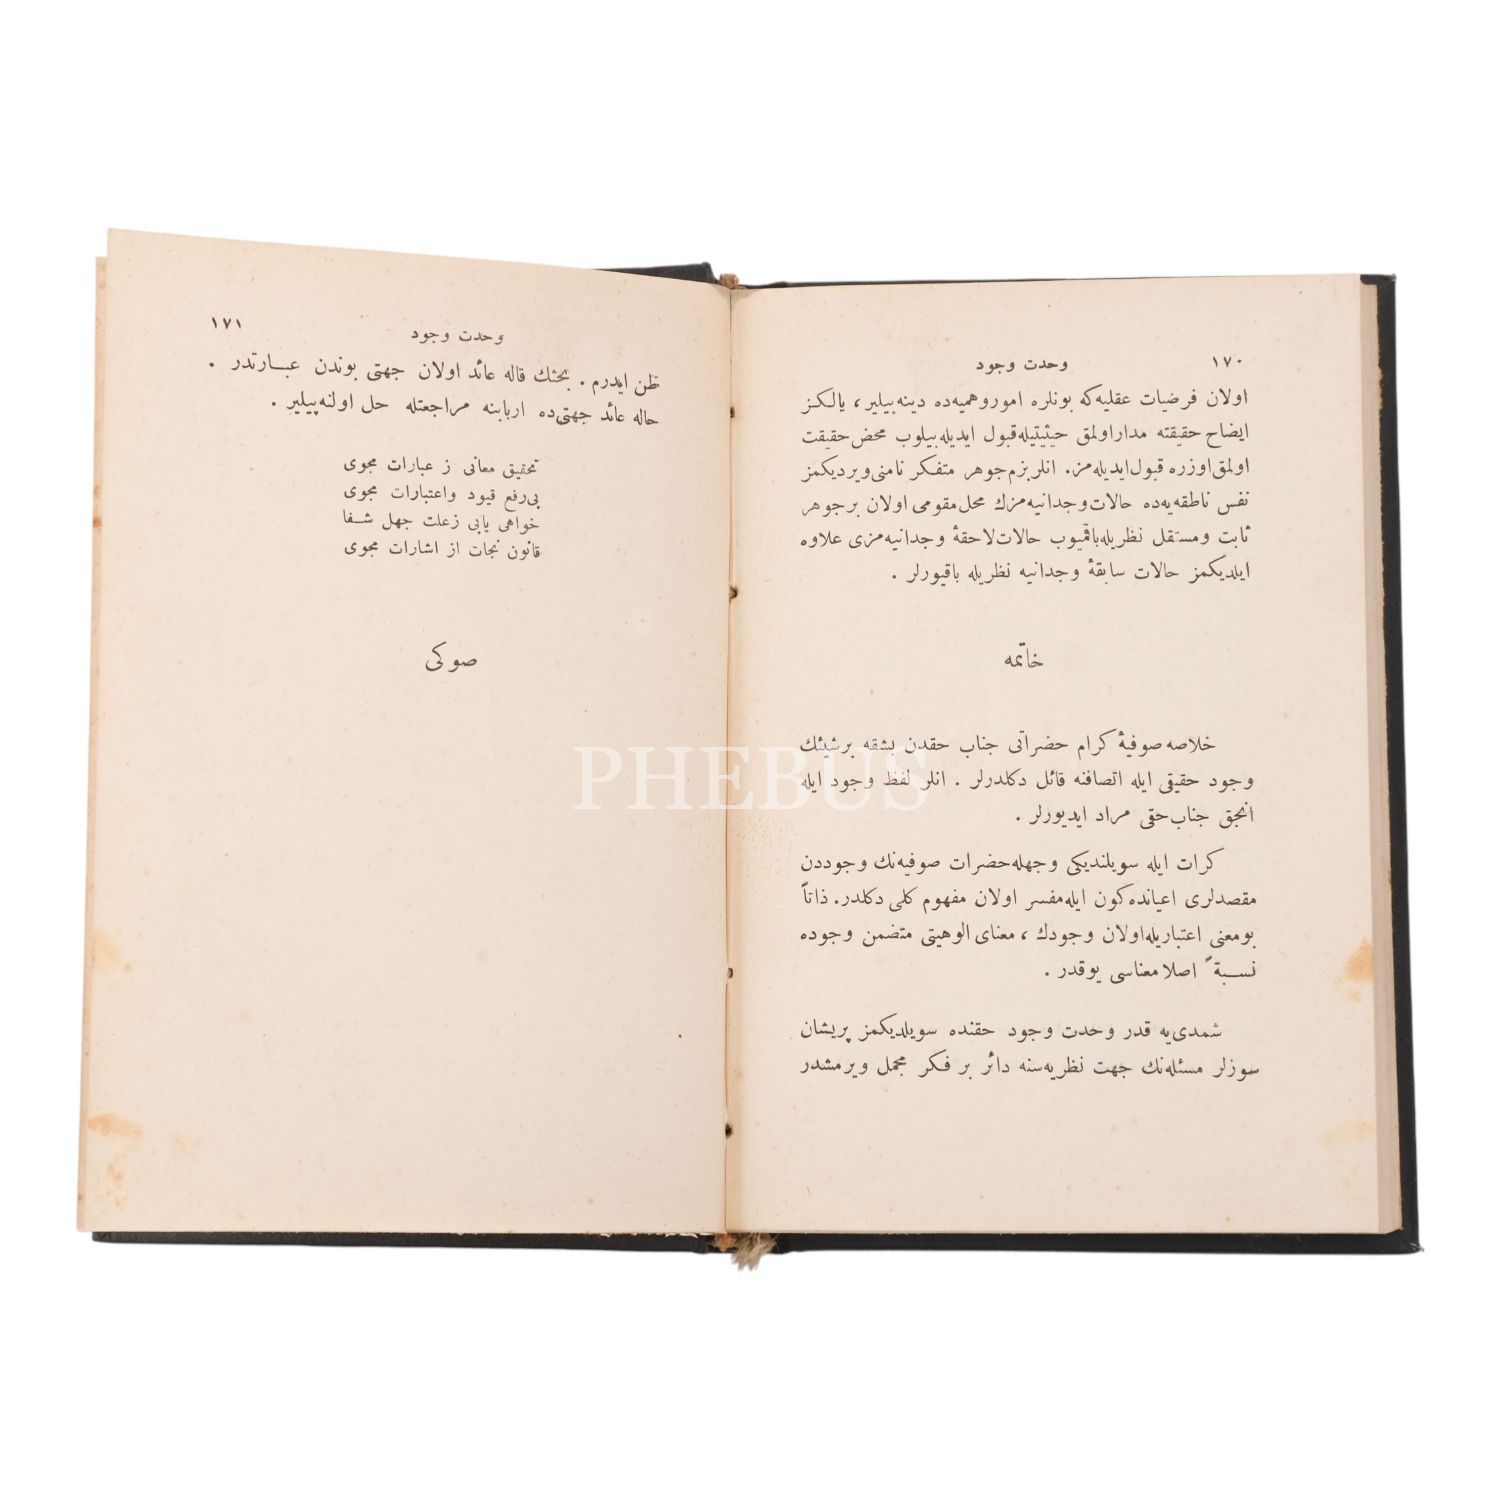 ١٧٠
وحدت وجود
اولان فرضيات عقليه‌كه بونلره اموروهميه‌ده دينه‌بيلير، يالكز
ايضاح حقيقته مداراولمق حيثيتيله‌قبول ايديله‌بيلوب محض‌حقيقت
اولمق‌اوزره قبول‌ايديله‌مز. انلربزم‌جوهر متفكر نامنى‌ويرديكمز
نفس ناطقه‌يه‌ده حالات‌وجدانيه‌مزك محل‌مقومى اولان برجوهر
ثابت ومستقل نظريله‌باقميوب حالات‌لاحقهٔ وجدانيه‌مزى علاوه
ايلديكمز حالات سابقهٔ وجدانيه نظريله باقيورلر .
خاتمه
خلاصه‌صوفيهٔ كرام حضراتى جناب حقدن بشقه برشيئك
وجود حقيقى ايله اتصافنه قائل دكلدرلر . انلر لفظ وجود ايله
انجق جناب‌حقى مراد ايديورلر .
كرات ايله سويلنديكى وجهله‌حضرات صوفيه‌نك وجوددن
مقصدلرى اعيانده‌كون ايله‌مفسر اولان مفهوم كلى دكلدر. ذاتاً
بومعنى اعتباريله‌اولان وجودك ، معناى الوهيتى متضمن وجوده
نسبةً اصلا معناسى يوقدر .
شمدى‌يه قدر وحدت وجود حقنده سويلديكمز پريشان
سوزلر مسئله‌نك جهت نظريه‌سنه دائر بر فكر مجمل ويرمشدر
١٧١
وحدت وجود
ظن ايدرم . بحثك قاله عائد اولان جهتى بوندن عبارتدر .
حاله عائد جهتى‌ده اربابنه مراجعتله حل اولنه‌بيلير .
تحقيق معانى ز عبارات مجوى
بى‌رفع قيود واعتبارات مجوى
خواهى يابى زعلت جهل شفا
قانون نجات از اشارات مجوى
صوكى
PHEBUS